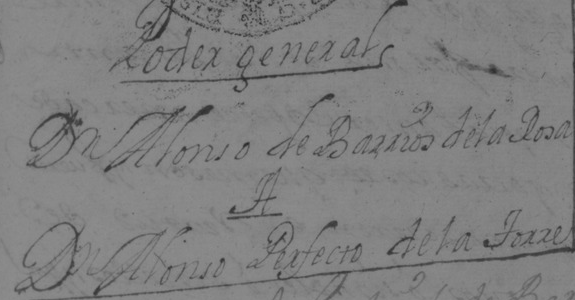 Poder general
Dn Alonso de Barrios de la Rosa
A
Dn Alonso Perfecto de la Torre